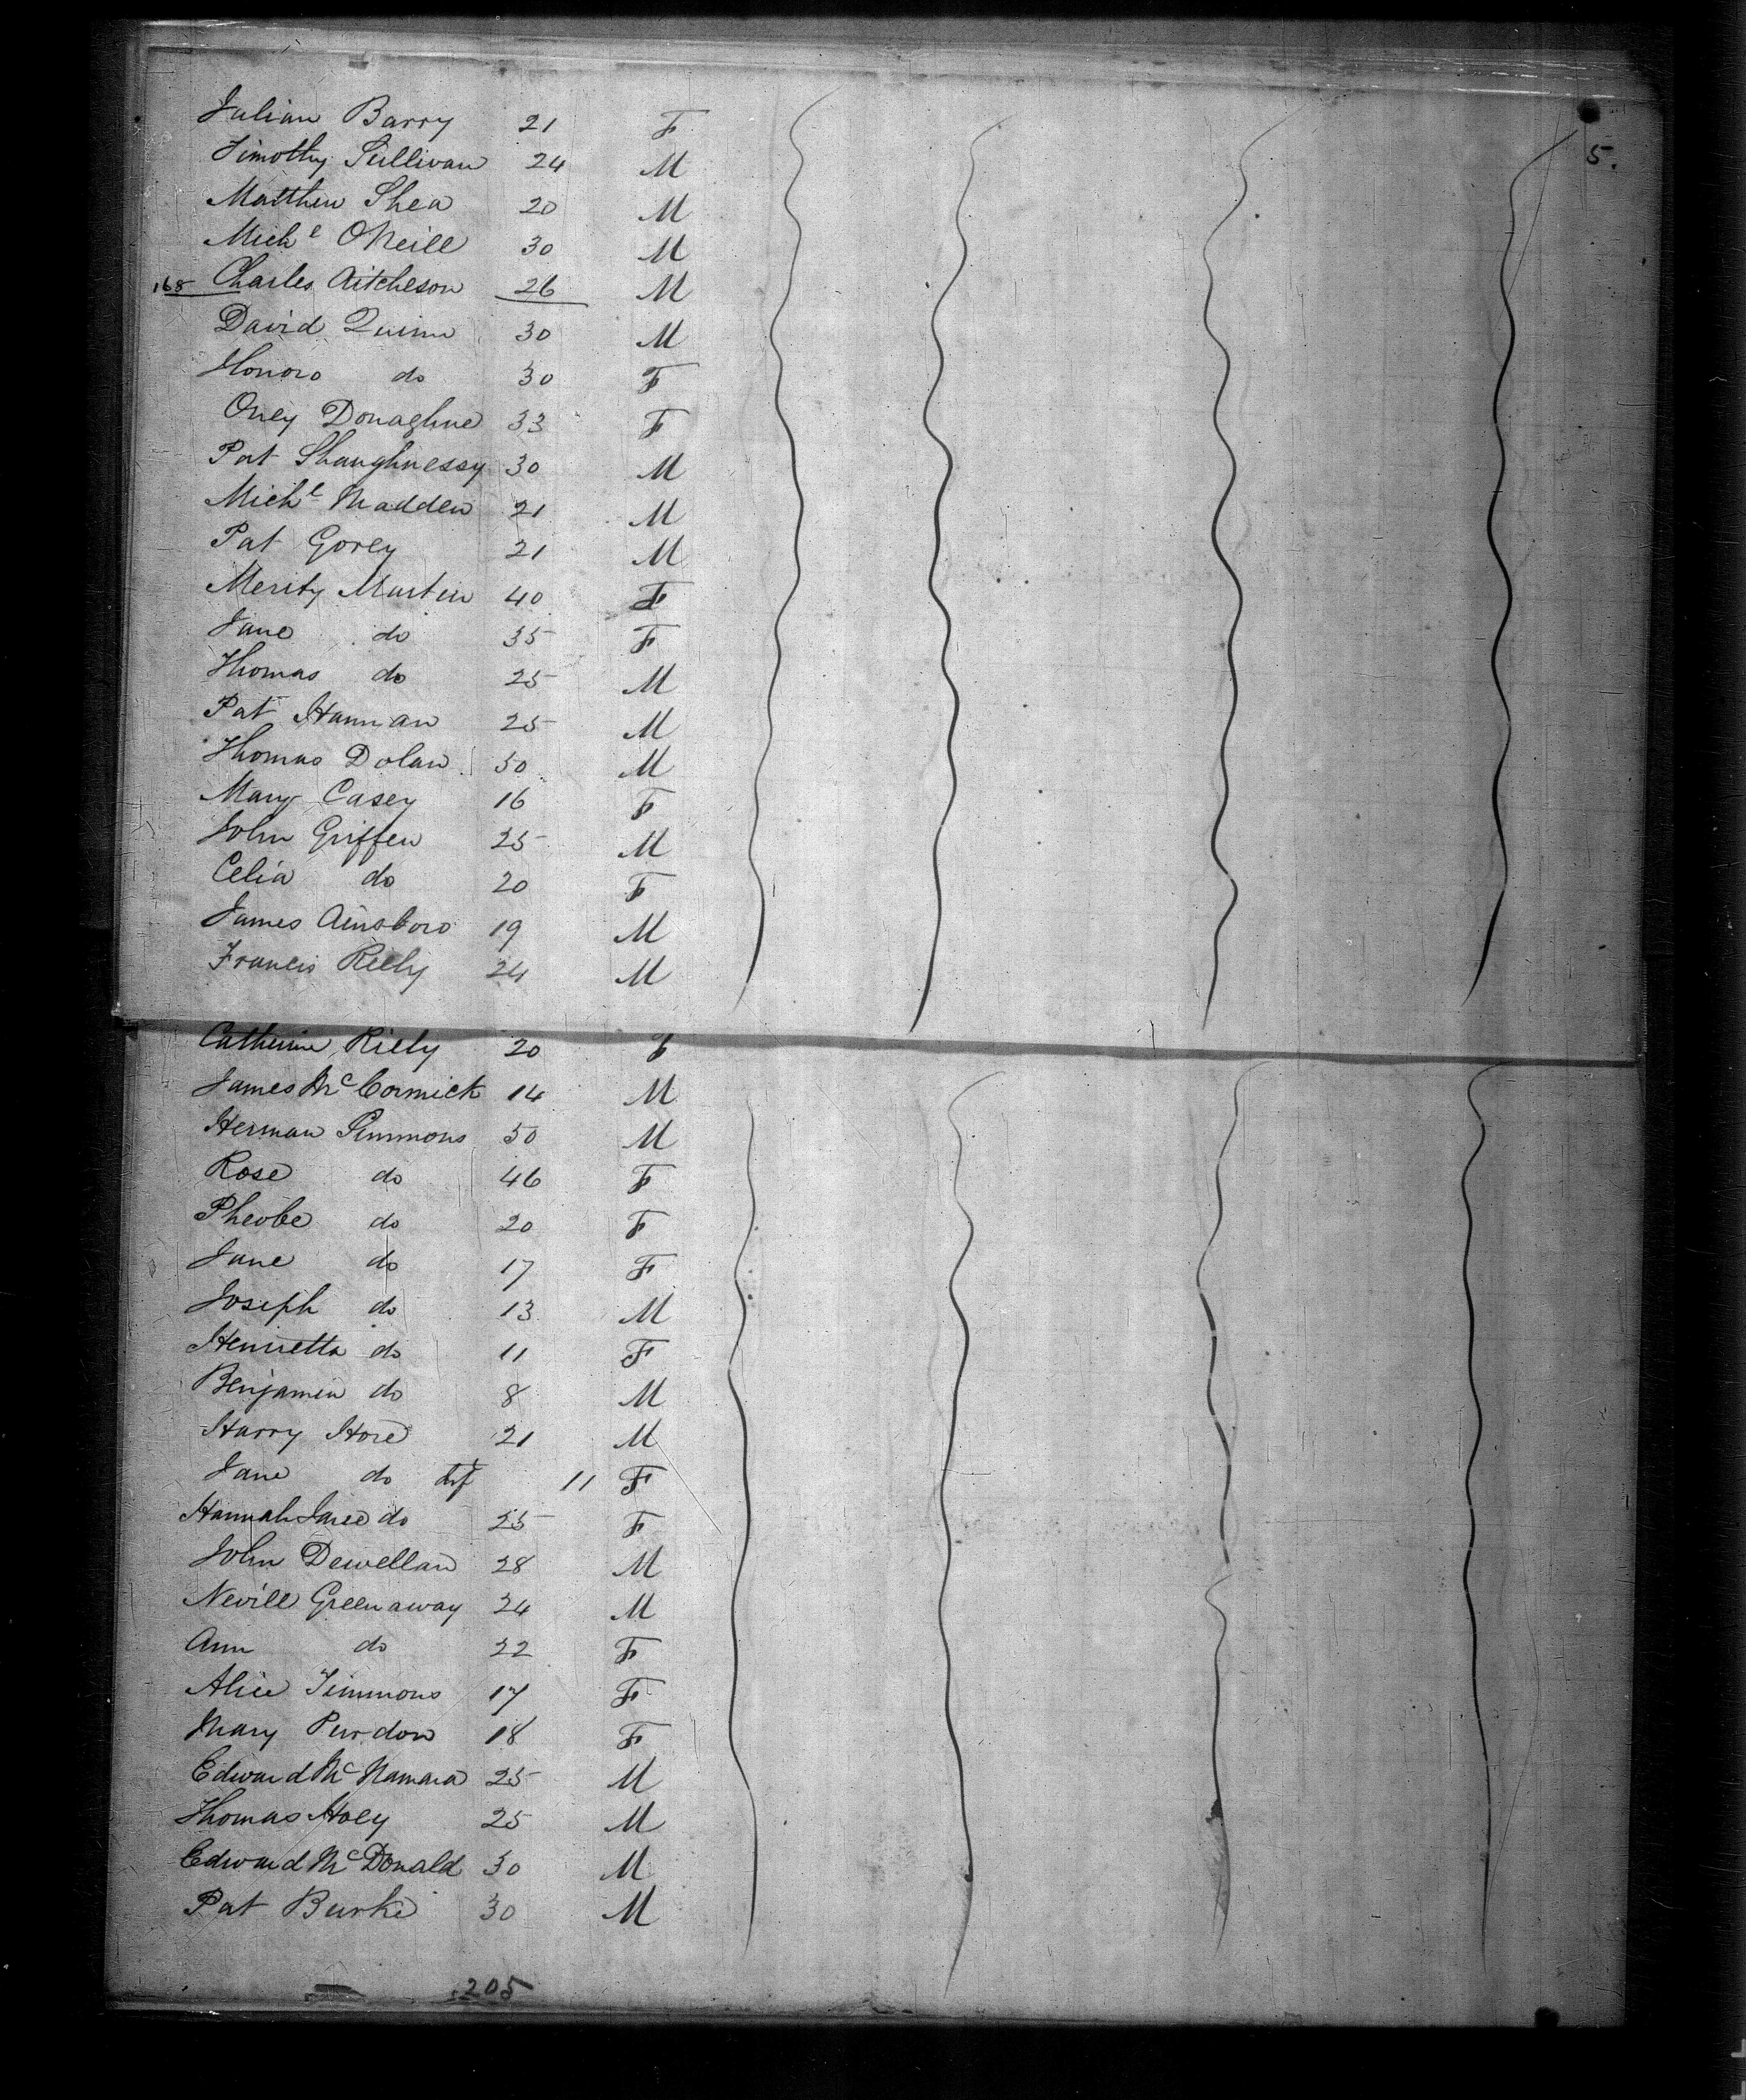 Julian Barry 21 F
5.
Timothy Sullivan 24 M
Matthew Shea 20 M
Mich l ONeill 30 M
168 Charles Aitcheson 26 M
David Quinn 30 M
Honoro do 30 F
Oney Donaghue 33 F
Pat Shaughnessy 30 M
Mich l Madden 21 M
Pat Gorey 21 M
Merity Martin 40 F
Jane do 35 F
Thomas do 25 M
Pat Hannan 25 M
Thomas Dolan 30 M
Mary Casey 16 F
John Griffen 25 M
Celia do 20 F
James Ainsboro 19 M
Francis Riely 24 M
Catherine Riely 20 F
James McCormick 14 M
Herman Simmons 50 M
Rose do 46 F
Pheobe do 20 F
Jane do 17 F
Joseph do 13 M
Henrietta do 11 F
Benjamin do 8 M
Harry Hore 21 M
Jane do inf 11 F
Hannah Jane do 25 F
John Dewellan 28 M
Nevill Greenaway 24 M
Ann do 22 F
Alice Timmons 17 F
Mary Purdon 18 F
Edward McNamara 25 M
Thomas Hoey 25 M
Edward McDonald 30 M
Pat Burke 30 M
205